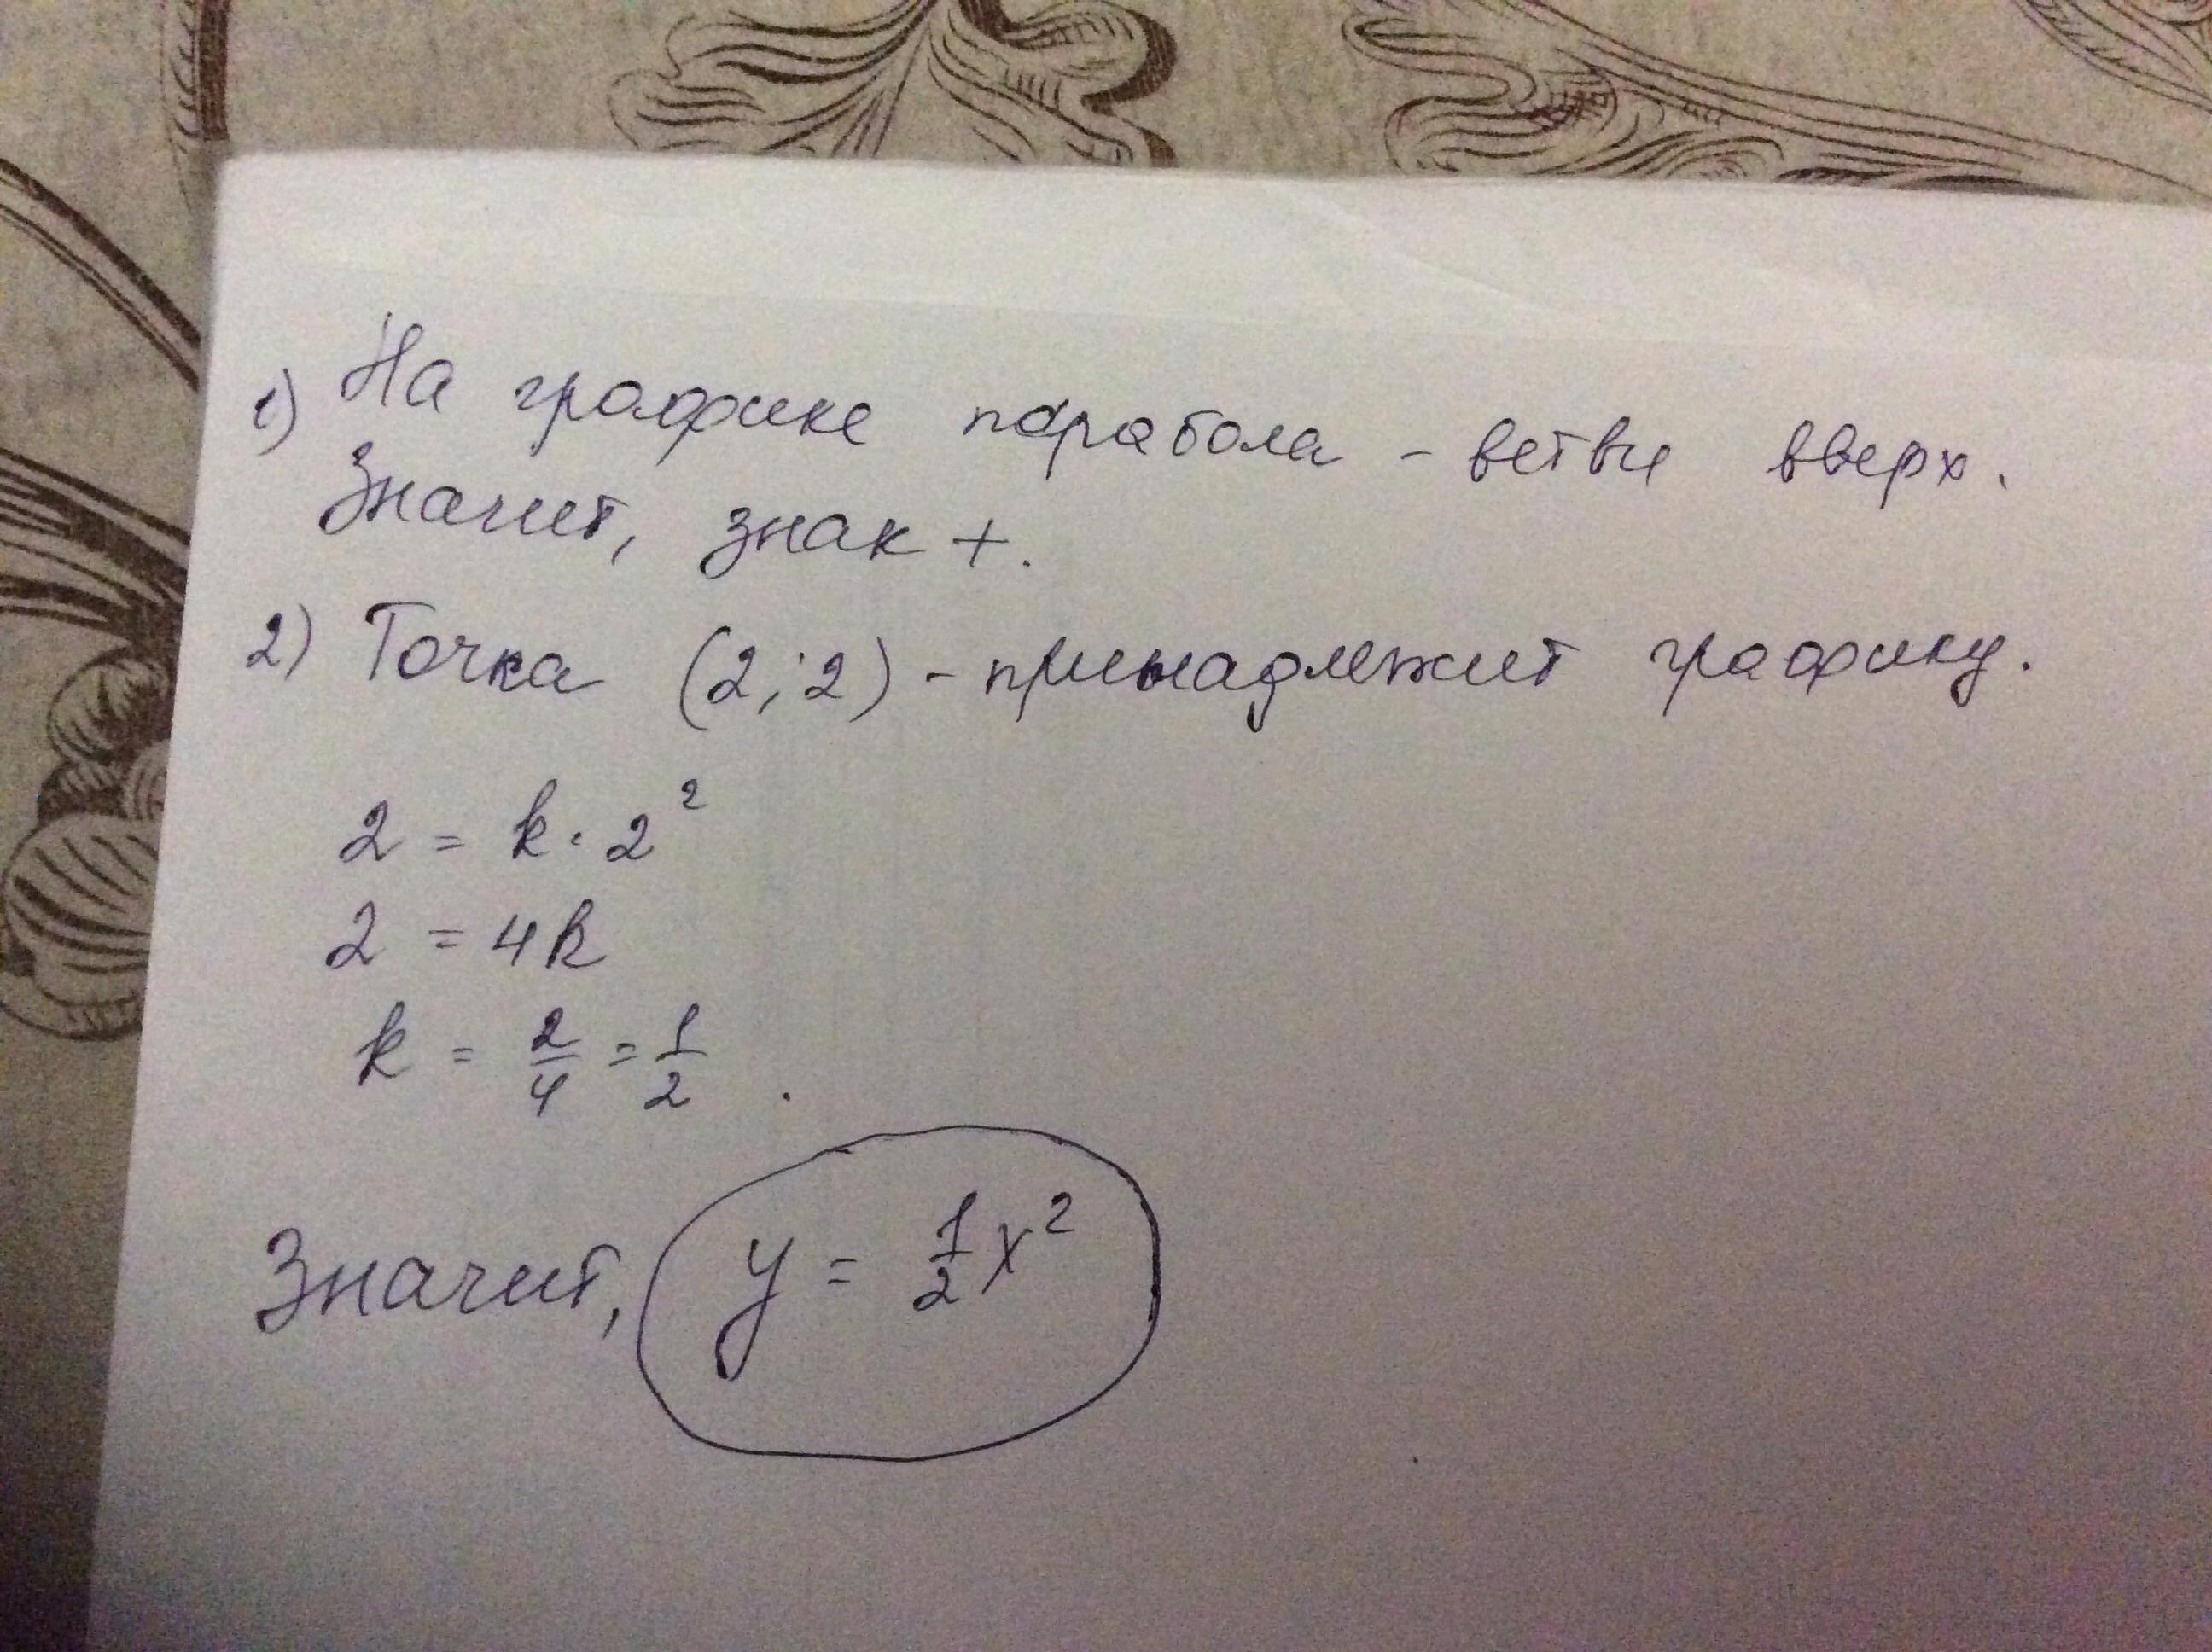 1) На графике парабола - ветви вверх.
Значит, знак +.
2) Точка (2; 2) - принадлежит графику.
2 = k · 2²
2 = 4k
k = 2/4 = 1/2 .
Значит, y = 1/2 x²